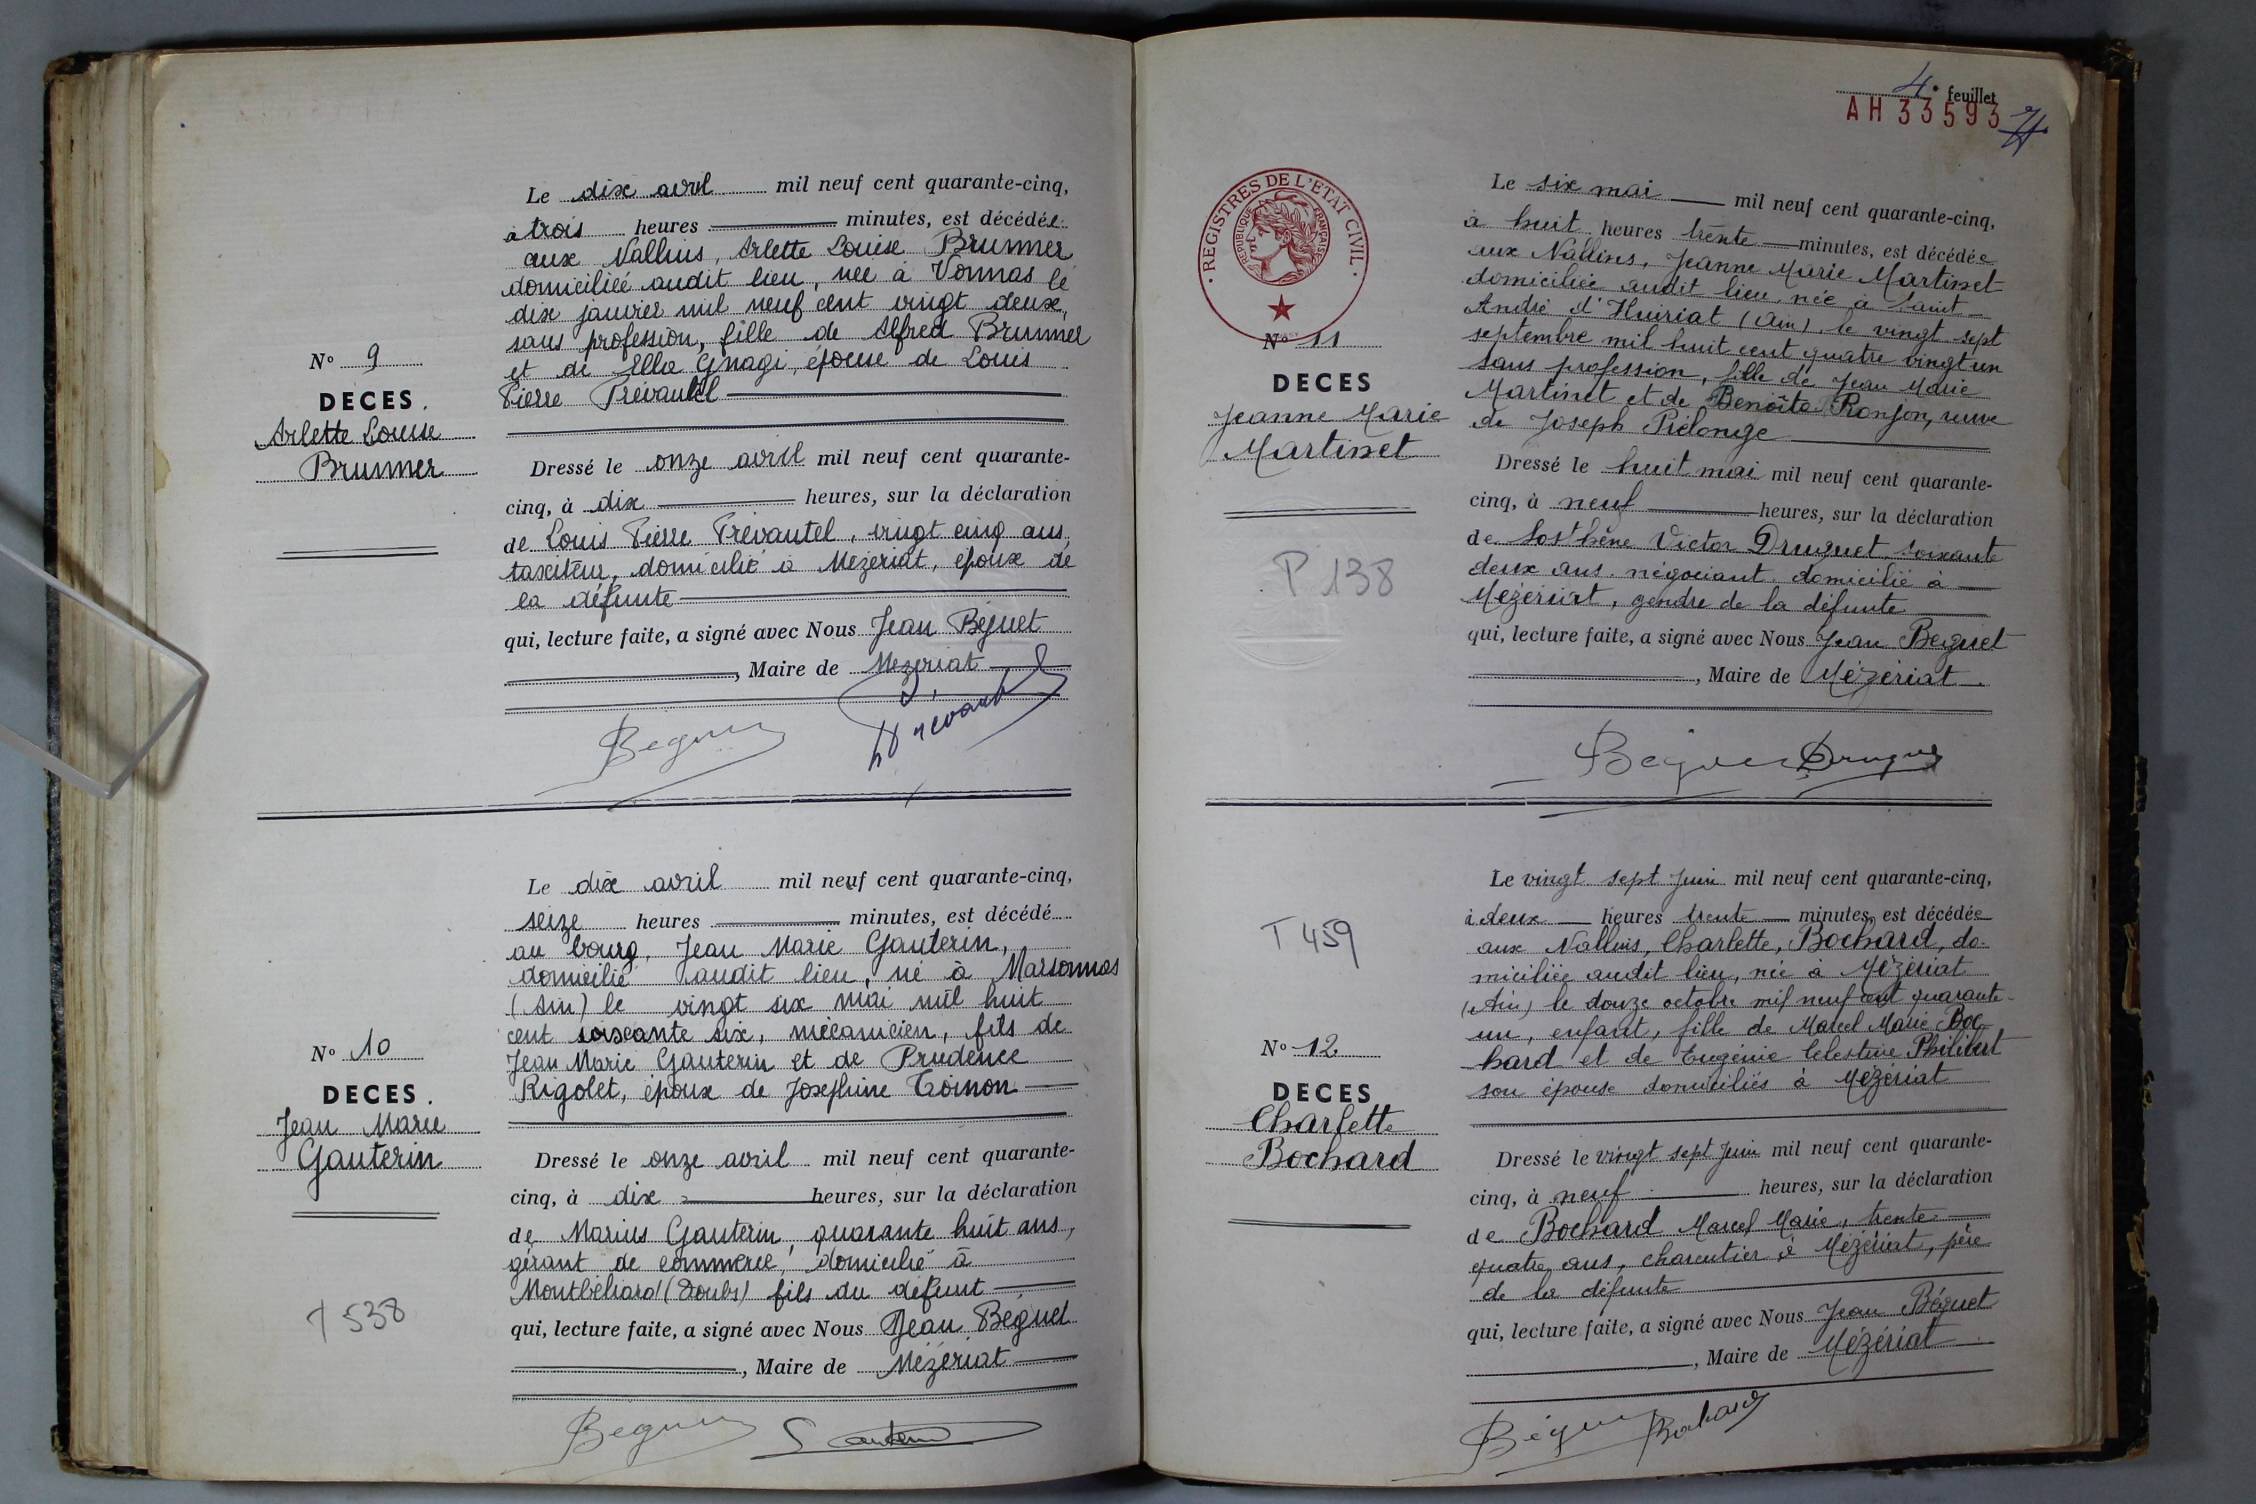 Le dix avril mil neuf cent quarante-cinq,
à trois heures minutes, est décédée
aux Nallins, Arlette Louise Brunner
domiciliée audit lieu, née à Vonnas le
dix janvier mil neuf cent vingt deux,
sans profession, fille de Alfred Brunner
et de Ella Gnagi, épouse de Louis
Pierre Prévautel
N° 9
DECES.
Arlette Louise
Brunner
Dressé le onze avril mil neuf cent quarante-
cinq, à dix heures, sur la déclaration
de Louis Pierre Prévautel, vingt cinq ans,
taxiteur, domicilié à Mézériat, époux de
la défunte
qui, lecture faite, a signé avec Nous Jean Béguet
, Maire de Mézériat
Le dix avril mil neuf cent quarante-cinq,
seize heures minutes, est décédé
au bourg, Jean Marie Gauterin,
domicilié audit lieu, né à Marsonnas
(Ain) le vingt six mai mil huit
cent soixante six, mécanicien, fils de
Jean Marie Gauterin et de Prudence
Rigolet, époux de Joséphine Toinon
N° 10
DECES.
Jean Marie
Gauterin
Dressé le onze avril mil neuf cent quarante-
cinq, à dix heures, sur la déclaration
de Marius Gauterin, quarante huit ans,
gérant de commerce, domicilié à
Montbéliard (Doubs) fils du défunt
qui, lecture faite, a signé avec Nous Jean Béguet
, Maire de Mézériat
538
4e feuillet
AH 33593
REGISTRES DE L'ETAT CIVIL
REPUBLIQUE FRANÇAISE
Le six mai mil neuf cent quarante-cinq,
à huit heures trente minutes, est décédée
aux Nallins, Jeanne Marie Martinet
domiciliée audit lieu, née à Saint-
André d'Huiriat (Ain) le vingt sept
septembre mil huit cent quatre vingt un
sans profession, fille de Jean Marie
Martinet et de Benoîte Ronjon, veuve
de Joseph Piélonge
N° 11
DECES
Jeanne Marie
Martinet
P 138
Dressé le huit mai mil neuf cent quarante-
cinq, à neuf heures, sur la déclaration
de Sosthène Victor Druguet, soixante
deux ans, négociant, domicilié à
Mézériat, gendre de la défunte
qui, lecture faite, a signé avec Nous Jean Béguet
, Maire de Mézériat
Le vingt sept juin mil neuf cent quarante-cinq,
à deux heures trente minutes, est décédée
aux Nallins, Charlette, Bochard, do-
miciliée audit lieu, née à Mézériat
(Ain) le douze octobre mil neuf cent quarante-
un, enfant, fille de Marcel Marie Boc
hard et de Eugénie Célestine Philibert
son épouse domiciliés à Mézériat
T 459
N° 12
DECES
Charlette
Bochard
Dressé le vingt sept juin mil neuf cent quarante-
cinq, à neuf heures, sur la déclaration
de Bochard Marcel Marie, trente
quatre ans, charcutier à Mézériat, père
de la défunte
qui, lecture faite, a signé avec Nous Jean Béguet
, Maire de Mézériat
Bochard